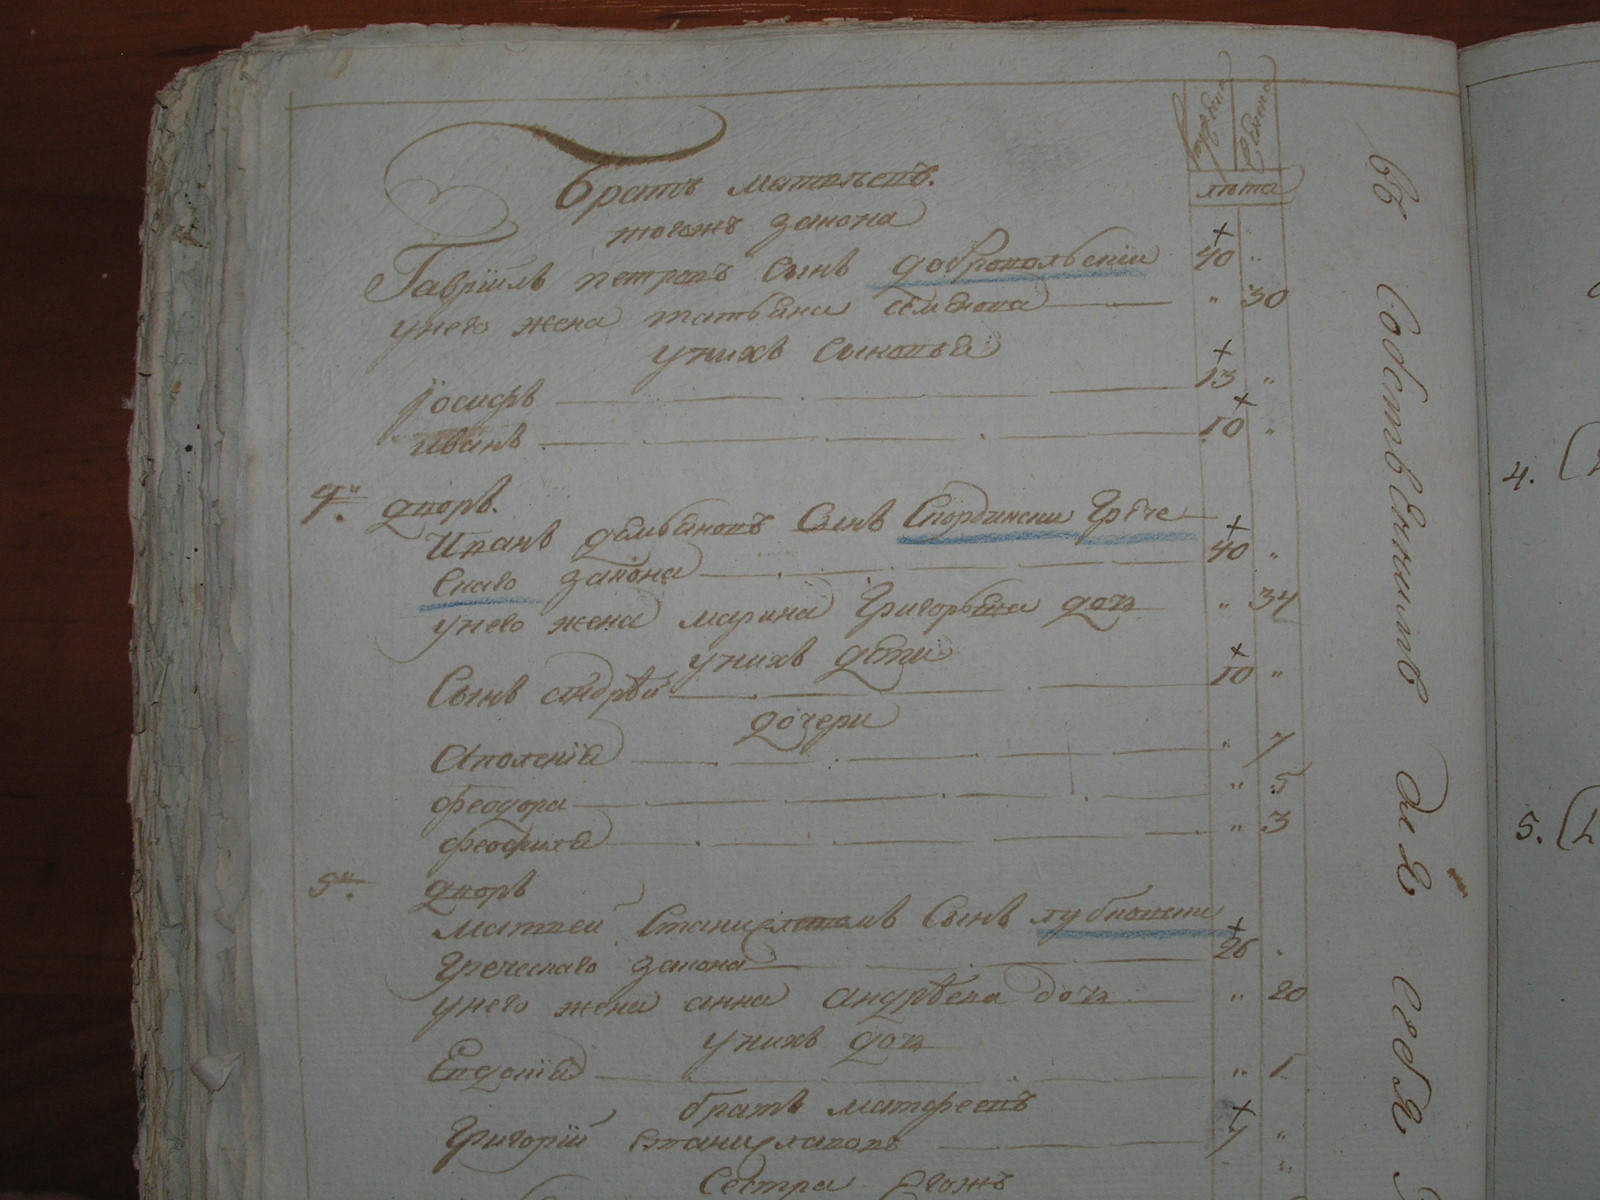 лѣта
Братъ Матвѣевъ.
тогожъ закона
Гавріилъ Петровъ сынъ Добровольскіи 40 „
у него жена Татьяна Семенова „ 30
у нихъ сыновья
Іосифъ 13 „
Иванъ 10 „
4й. дворъ.
Иванъ Демьяновъ сынъ Грече
скаго закона 40 „
у него жена Марина Григорьева доч „ 34
у нихъ дети
Сынъ Андрѣй 10 „
дочери
Аполенія „ 7
Феодора „ 5
Феофила „ 3
5й. дворъ
Матвеи Станиславовъ сынъ Лубковски
Греческаго закона 26 „
у него жена Анна Андрѣева доч „ 20
у нихъ доч
Евдокія „ 1
братъ Матфеевъ
Григорій Станиславовъ 7 „
Сестра Егожъ
въ собственныхъ для себя
4.
5.